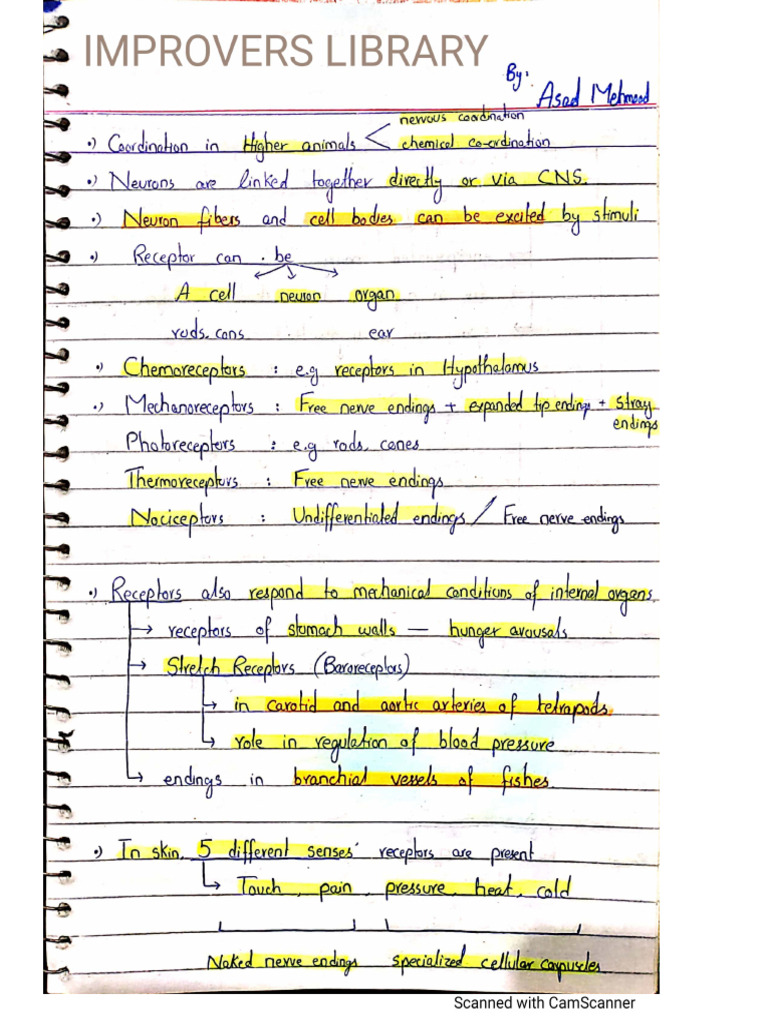 IMPROVERS LIBRARY
By: Asad Mehmood
nervous coordination
•) Coordination in Higher animals < chemical co-ordination
•) Neurons are linked together directly or via CNS.
•) Neuron fibers and cell bodies can be excited by stimuli
•) Receptor can be
A cell neuron organ
rods, cons ear
•) Chemoreceptors : e.g receptors in Hypothalamus
•) Mechanoreceptors : Free nerve endings + expanded tip endings + stray
endings
Photoreceptors : e.g rods, cones
Thermoreceptors : Free nerve endings
Nociceptors : Undifferentiated endings / Free nerve endings
•) Receptors also respond to mechanical conditions of internal organs.
→ receptors of stomach walls — hunger arousals
→ Stretch Receptors (Baroreceptors)
→ in carotid and aortic arteries of tetrapods.
→ role in regulation of blood pressure
→ endings in branchial vessels of fishes
•) In skin, 5 different senses' receptors are present
→ Touch, pain, pressure, heat, cold
Naked nerve endings specialized cellular corpuscles
Scanned with CamScanner